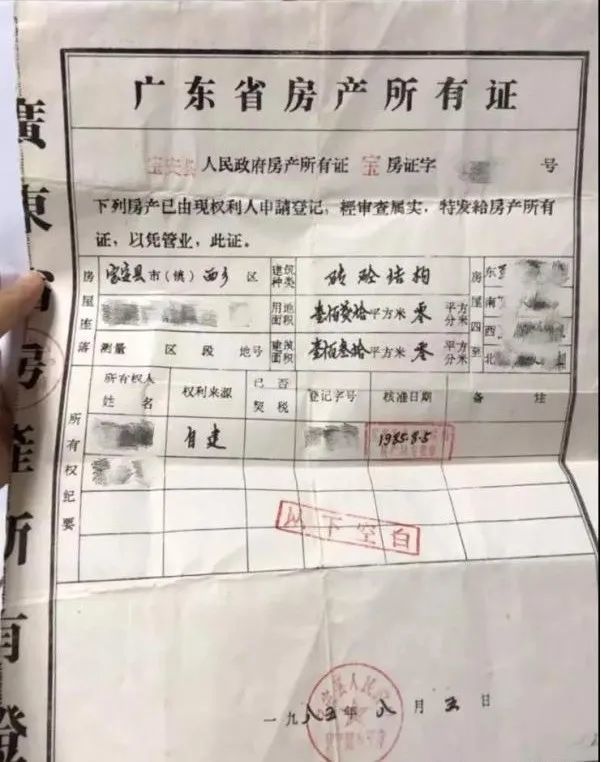 广东省房产所有证
宝安县人民政府房产所有证 宝 房证字 号
下列房产已由现权利人申請登记，經审查属实，特发給房产所有
证，以凭管业，此证。
房屋座落
宝安县市（镇）西乡 区
建筑种类
砖砼结构
房屋四至
东
南
西
北
用地面积
平方米 零 平方分米
测量 区 段 地号
建筑面积
壹佰叁拾平方米 零 平方分米
所有权纪要
所有权人姓名
权利来源
已否契税
登记字号
核准日期
备注
自建
1985.8.5
以下空白
一九八五年 八 月 五 日
廣東省房產所有證